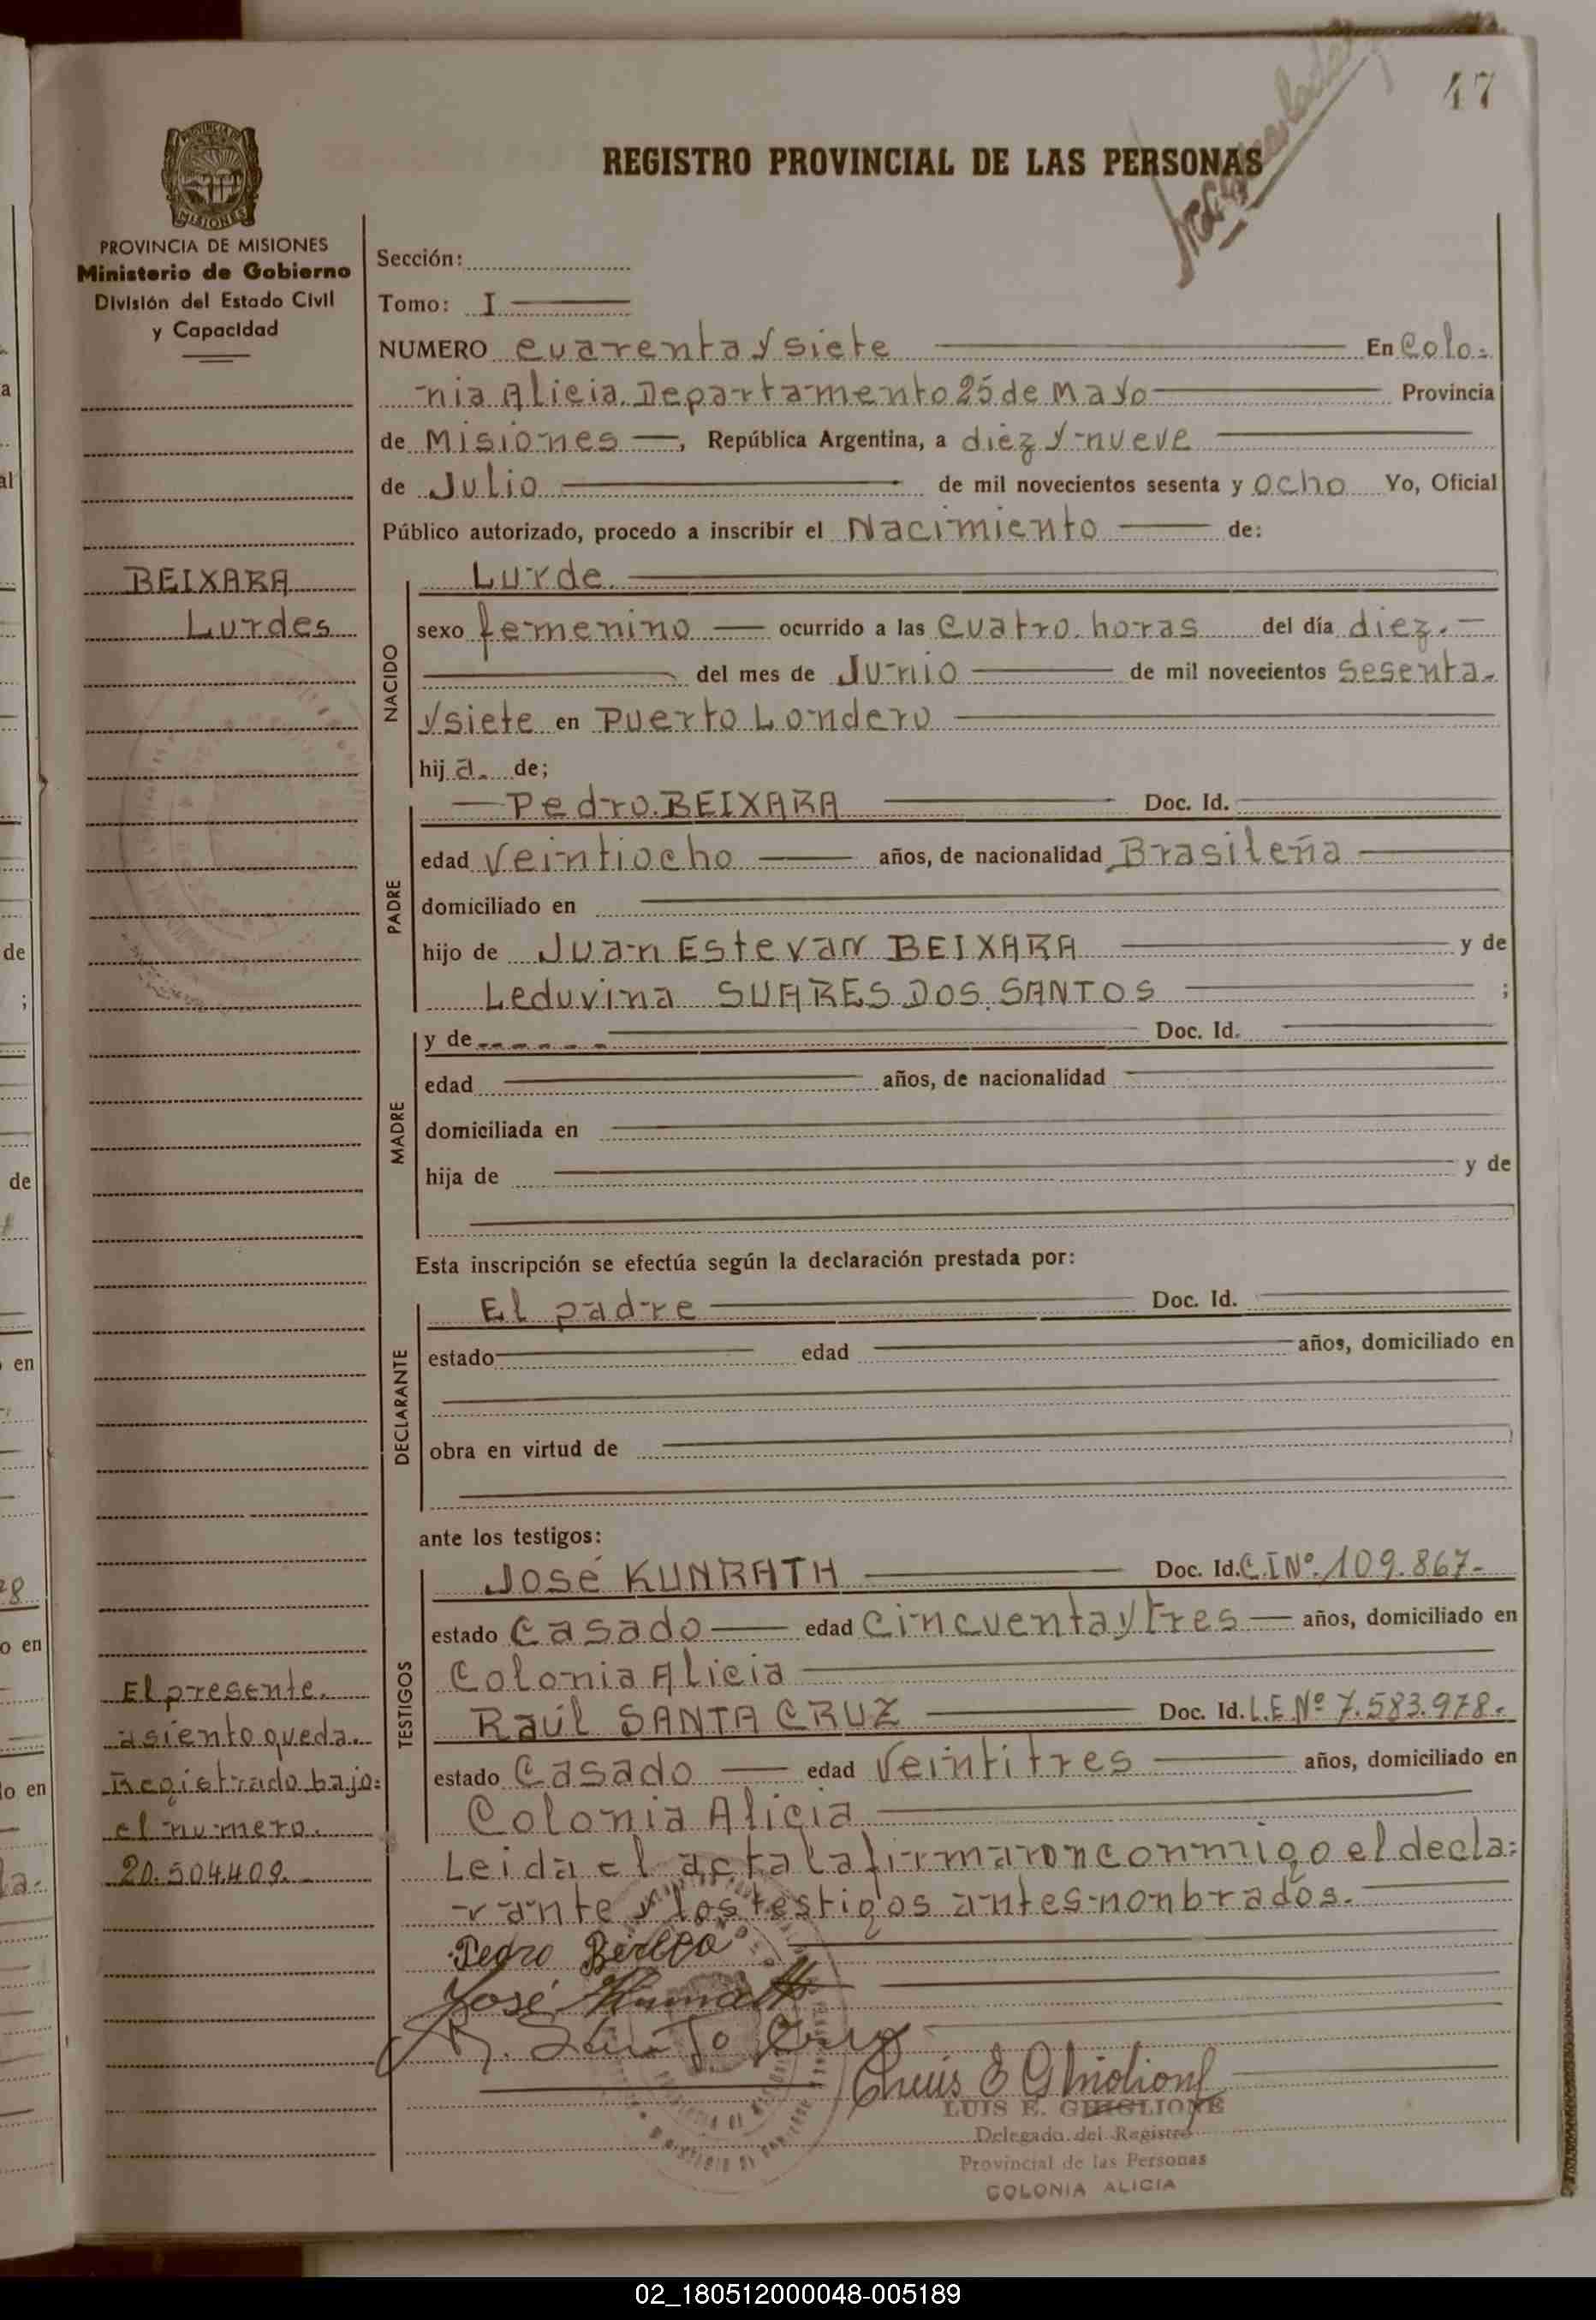 47
REGISTRO PROVINCIAL DE LAS PERSONAS
PROVINCIA DE MISIONES
Ministerio de Gobierno
División del Estado Civil
y Capacidad
Sección:
Tomo: I
NUMERO cuarenta y siete En Colo-
nia Alicia Departamento 25 de Mayo Provincia
de Misiones, República Argentina, a diez y nueve
de Julio de mil novecientos sesenta y ocho Yo, Oficial
Público autorizado, procedo a inscribir el Nacimiento de:
BEIXARA
Lurdes
NACIDO
Lurde
sexo femenino ocurrido a las cuatro horas del día diez.
del mes de Junio de mil novecientos sesenta
y siete en Puerto Londero
hij a. de;
PADRE
Pedro BEIXARA Doc. Id.
edad Veintiocho años, de nacionalidad Brasileña
domiciliado en
hijo de Juan Estevan BEIXARA y de
Leduvina SUARES DOS SANTOS ;
MADRE
y de Doc. Id.
edad años, de nacionalidad
domiciliada en
hija de y de
Esta inscripción se efectúa según la declaración prestada por:
DECLARANTE
El padre Doc. Id.
estado edad años, domiciliado en
obra en virtud de
ante los testigos:
TESTIGOS
José KUNRATH Doc. Id. C.I Nº. 109.867-
estado Casado edad Cincuenta y tres años, domiciliado en
Colonia Alicia
Raúl SANTA CRUZ Doc. Id. L.E Nº 7.583.978.
estado Casado edad Veintitres años, domiciliado en
Colonia Alicia
Leida el acta la firmaron conmigo el decla-
rante y los testigos antes nonbrados.
El presente
asiento queda
Registrado bajo
el numero.
20.504.409.
Pedro
José
LUIS E. GHIGLIONE
Delegado del Registro
Provincial de las Personas
COLONIA ALICIA
02_180512000048-005189